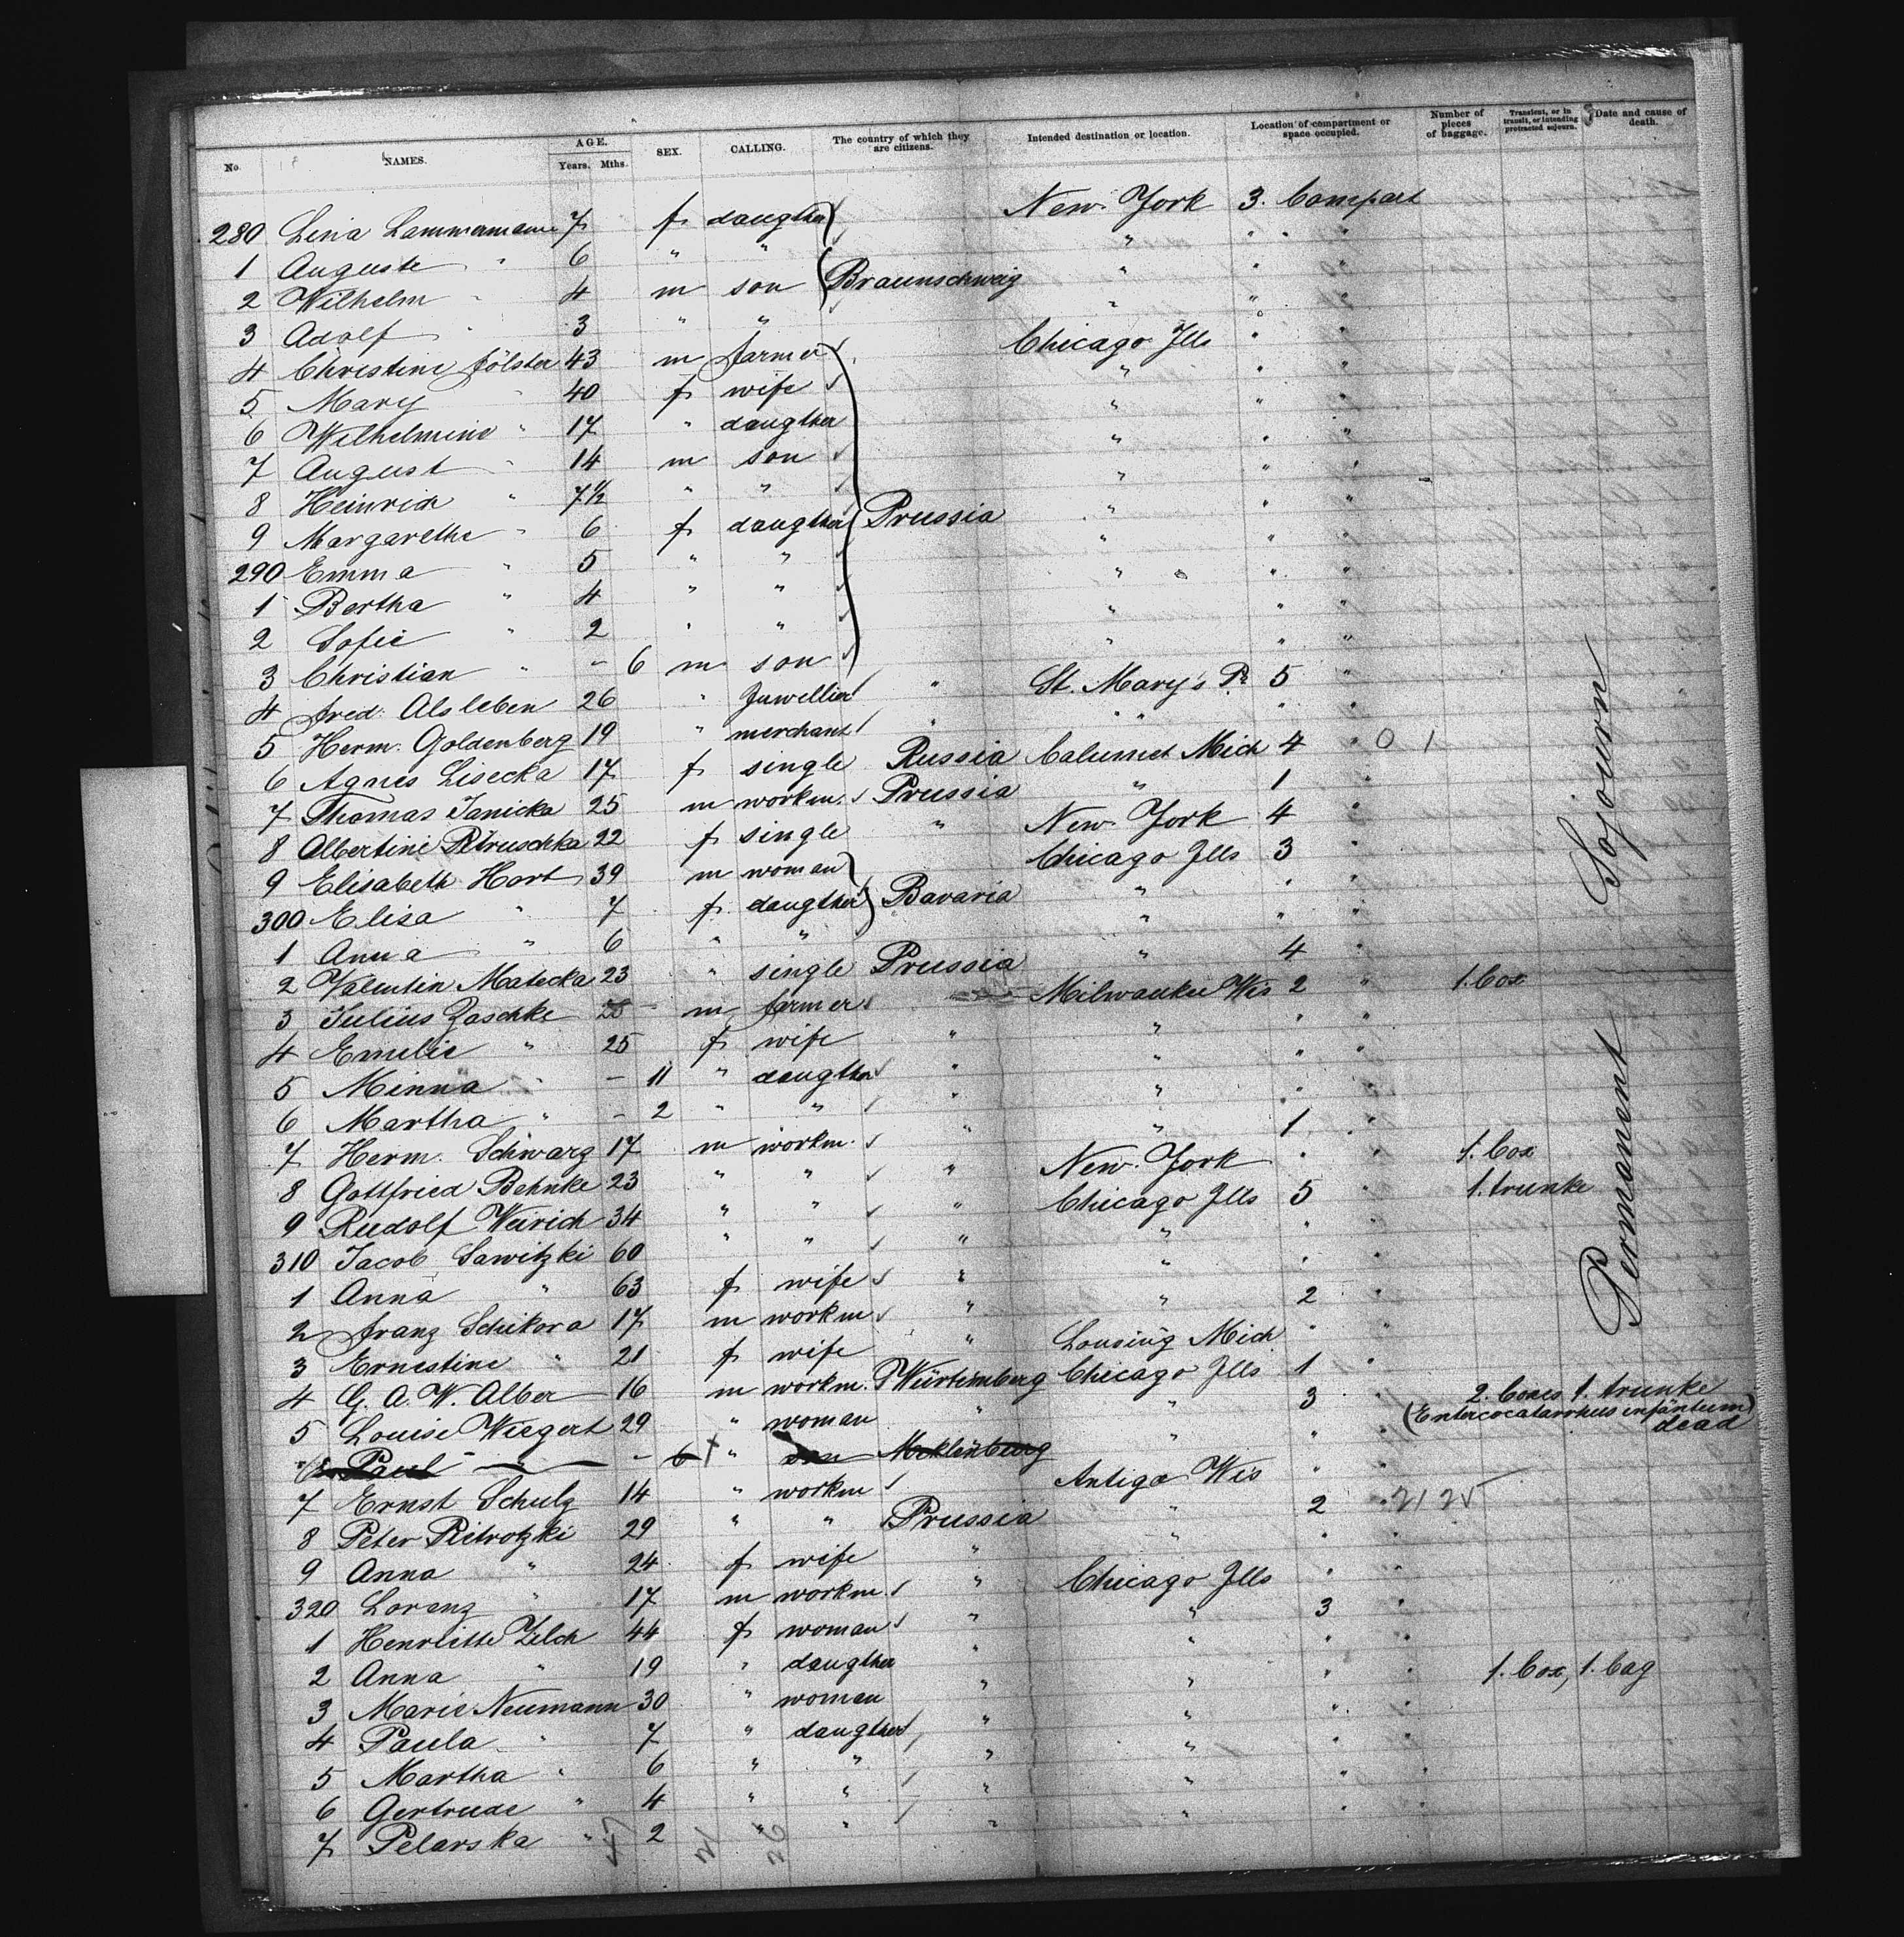 No. NAMES. AGE. Years. Mths. SEX. CALLING. The country of which they are citizens. Intended destination or location. Location of compartment or space occupied. Number of pieces of baggage. Transient, or in transit, or intending protracted sojourn. Date and cause of death.
280 Lina Lammermann 7 f daugther New-York 3. Compart
1 Auguste " 6 " " " " "
2 Wilhelm " 4 m son Braunschweig " " "
3 Adolf " 3 " " " " "
4 Christine Fölster 43 m farmer Chicago Ills " "
5 Mary " 40 f wife " " "
6 Wilhelmine " 17 " daugther " " "
7 August " 14 m son " " "
8 Heinrich " 7 1/2 " " " " "
9 Margarethe " 6 f daugther Prussia " " "
290 Emma " 5 " " " " "
1 Bertha " 4 " " " " "
2 Sofie " 2 " " " " "
3 Christian " - 6 m son " " "
4 Fred. Alsleben 26 " Juwellier " St. Mary's P. 5 "
5 Herm. Goldenberg 19 " merchant " " " " "
6 Agnes Lisecka 17 f single Russia Calumet Mich 4 " 0 1
7 Thomas Janicka 25 m workm. Prussia " 1
8 Albertine Petruschka 22 f single " New-York 4 "
9 Elisabeth Hart 39 m woman Chicago Ills 3 "
300 Elisa " 7 f daugther Bavaria " " "
1 Anna " 6 " " " " "
2 Valentin Matecka 23 " single Prussia " 4 "
3 Julius Zaschke 28 m farmer Milwaukee Wis 2 " 1. box
4 Emilie " 25 f wife " " " "
5 Minna " - 11 " daugther " " " "
6 Martha " - 2 " " " " "
7 Herm. Schwarz 17 m workm. " " 1 "
8 Gottfried Behnke 23 " " " New-York " " 1. box
9 Rudolf Weirich 34 " " " Chicago Ills 5 " 1. trunke
310 Jacob Sawitzki 60 " " " " " "
1 Anna " 63 f wife " " " "
2 Franz Schikora 17 m workm " " 2 "
3 Ernestine " 21 f wife " Lousing Mich " "
4 G. A. W. Alber 16 m workm. Würtemberg Chicago Ills 1 "
5 Louise Wiegert 29 " woman " " 3 " 2. boxes 1. trunke
6 Paul - 6 " son Meklenburg " " " (Enterocatarrhus infantum) dead
7 Ernst Schulz 14 " workm Antigo Wis " "
8 Peter Pietrotzki 29 " " Prussia " 2 " 21 25
9 Anna " 24 f wife " " " "
320 Lorenz " 17 m workm. " Chicago Ills " "
1 Henriette Zilch 44 f woman " " 3 "
2 Anna " 19 " daugther " " " "
3 Marie Neumann 30 " woman " " " " 1. box, 1. bag
4 Paula " 7 " daugther " " " "
5 Martha " 6 " " " " " "
6 Gertrude " 4 " " " " " "
7 Pelarska " 2 " " " " " "
Permanent Sojourn